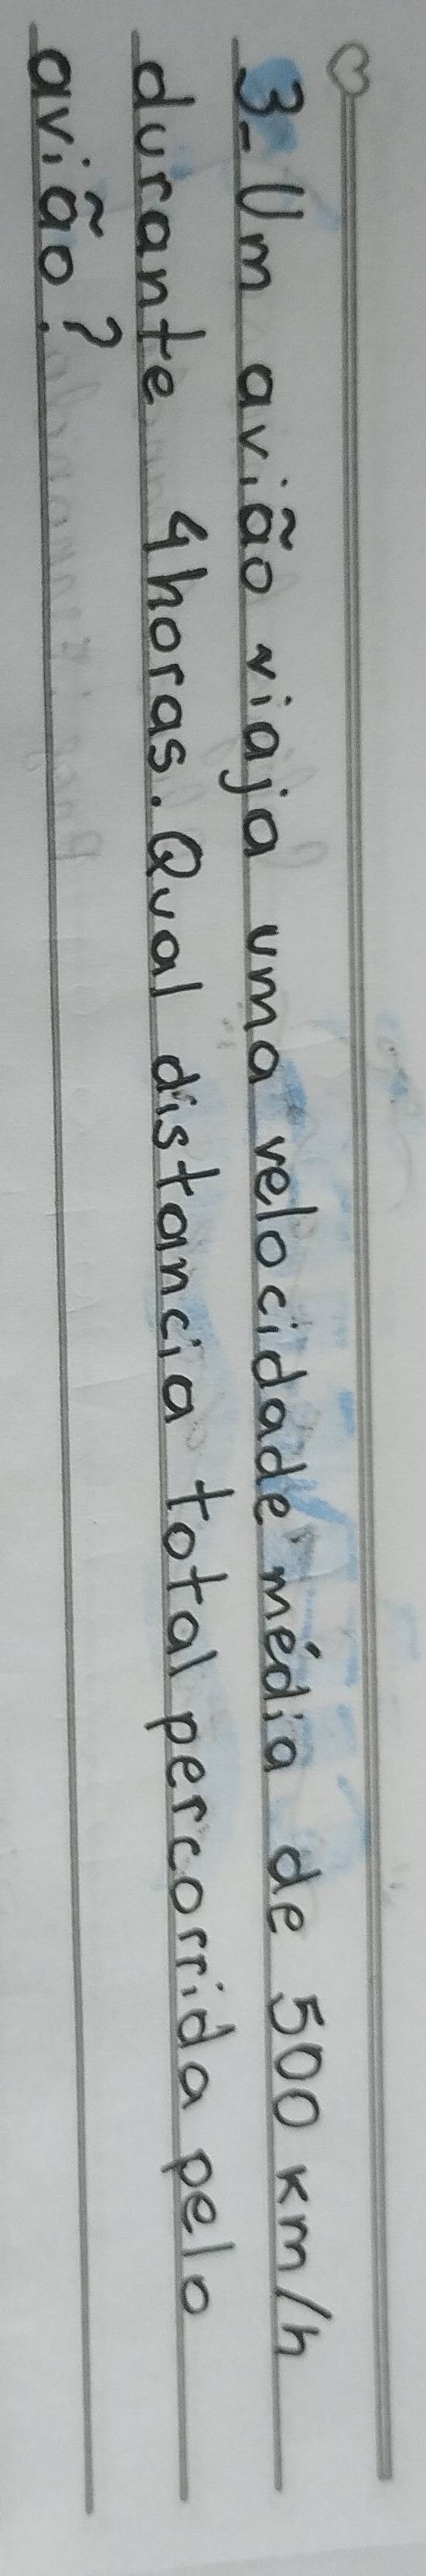 3- Um avião viaja uma velocidade média de 500 km/h
durante 4horas. Qual distancia total percorrida pelo
avião?